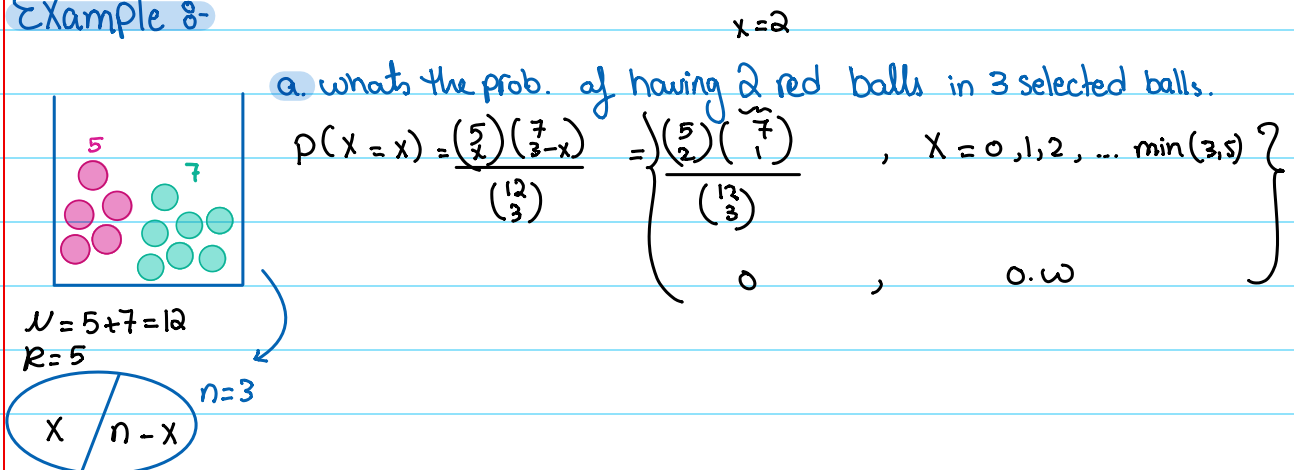 Example 8-
x=2
a. whats the prob. of having 2 red balls in 3 selected balls.
P(X = x) = (5 x)(7 3-x) / (12 3) = { (5 2)(7 1) / (12 3) , X = 0,1,2, ... min(3,5) }
0 , 0.w
5
7
N = 5+7=12
R=5
n=3
X n-x